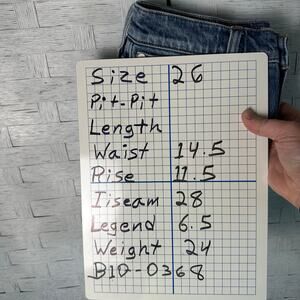 Size 26
Pit-Pit
Length
Waist 14.5
Rise 11.5
Iiseam 28
Legend 6.5
Weight 24
B1D-0368